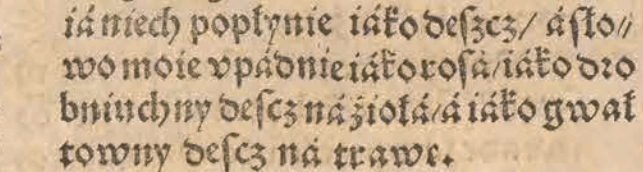 iá niech popłynie iáko deſzcz/ á ſło⸗
wo moie vpádnie iáko roſá/ iáko dro
bniuchny deſcz ná źiołá/ á iáko gwał
towny deſcz ná trawe.